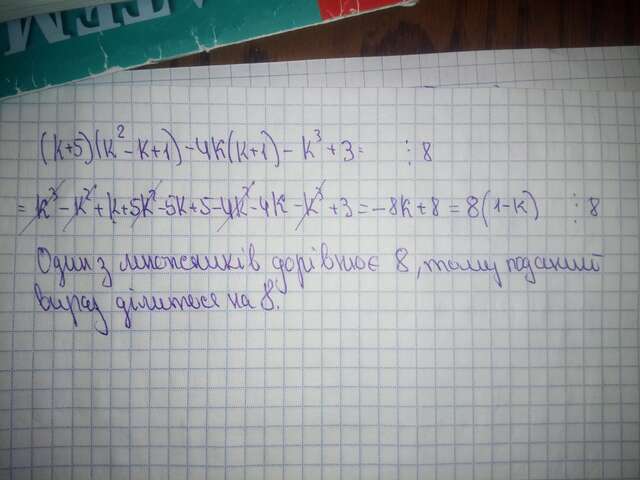 ATEM
(k+5)(k²-k+1)-4k(k+1)-k³+3= ⋮8
= k³-k²+k+5k²-5k+5-4k²-4k-k³+3=-8k+8=8(1-k) ⋮8
Один з множників дорівнює 8, тому поданий
вираз ділиться на 8.